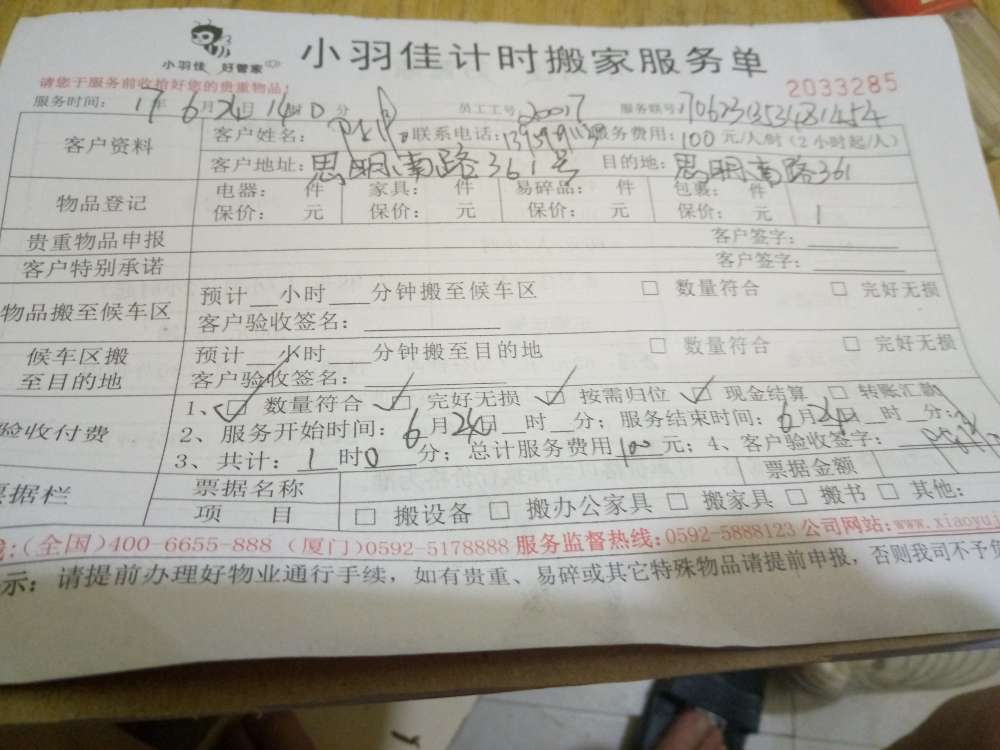 小羽佳 好管家
小羽佳计时搬家服务单
请您于服务前收拾好您的贵重物品!
2033285
服务时间: 17年6月24日14时0分 员工工号 20017 服务联号
客户资料
客户姓名: 联系电话: 服务费用: 100 元/人/时 (2小时起/人)
客户地址: 思明南路361号 目的地: 思明南路361
物品登记
电器: 件 家具: 件 易碎品: 件 包裹: 件
保价: 元 保价: 元 保价: 元 保价: 元 1
贵重物品申报 客户签字:
客户特别承诺 客户签字:
物品搬至候车区
预计__小时___分钟搬至候车区 □ 数量符合 □ 完好无损
客户验收签名:
候车区搬至目的地
预计__小时___分钟搬至目的地 □ 数量符合 □ 完好无损
客户验收签名:
验收付费
1、☑ 数量符合 ☑ 完好无损 ☑ 按需归位 ☑ 现金结算 □ 转账汇款
2、服务开始时间: 6月24日__时__分; 服务结束时间: 6月24日__时__分;
3、共计: 1时0分; 总计服务费用100元; 4、客户验收签字:
票据栏
票据名称 票据金额
项 目 □ 搬设备 □ 搬办公家具 □ 搬家具 □ 搬书 □ 其他:
(全国)400-6655-888 (厦门)0592-5178888 服务监督热线:0592-5888123 公司网站:www.xiaoyuj
示: 请提前办理好物业通行手续, 如有贵重、易碎或其它特殊物品请提前申报, 否则我司不予